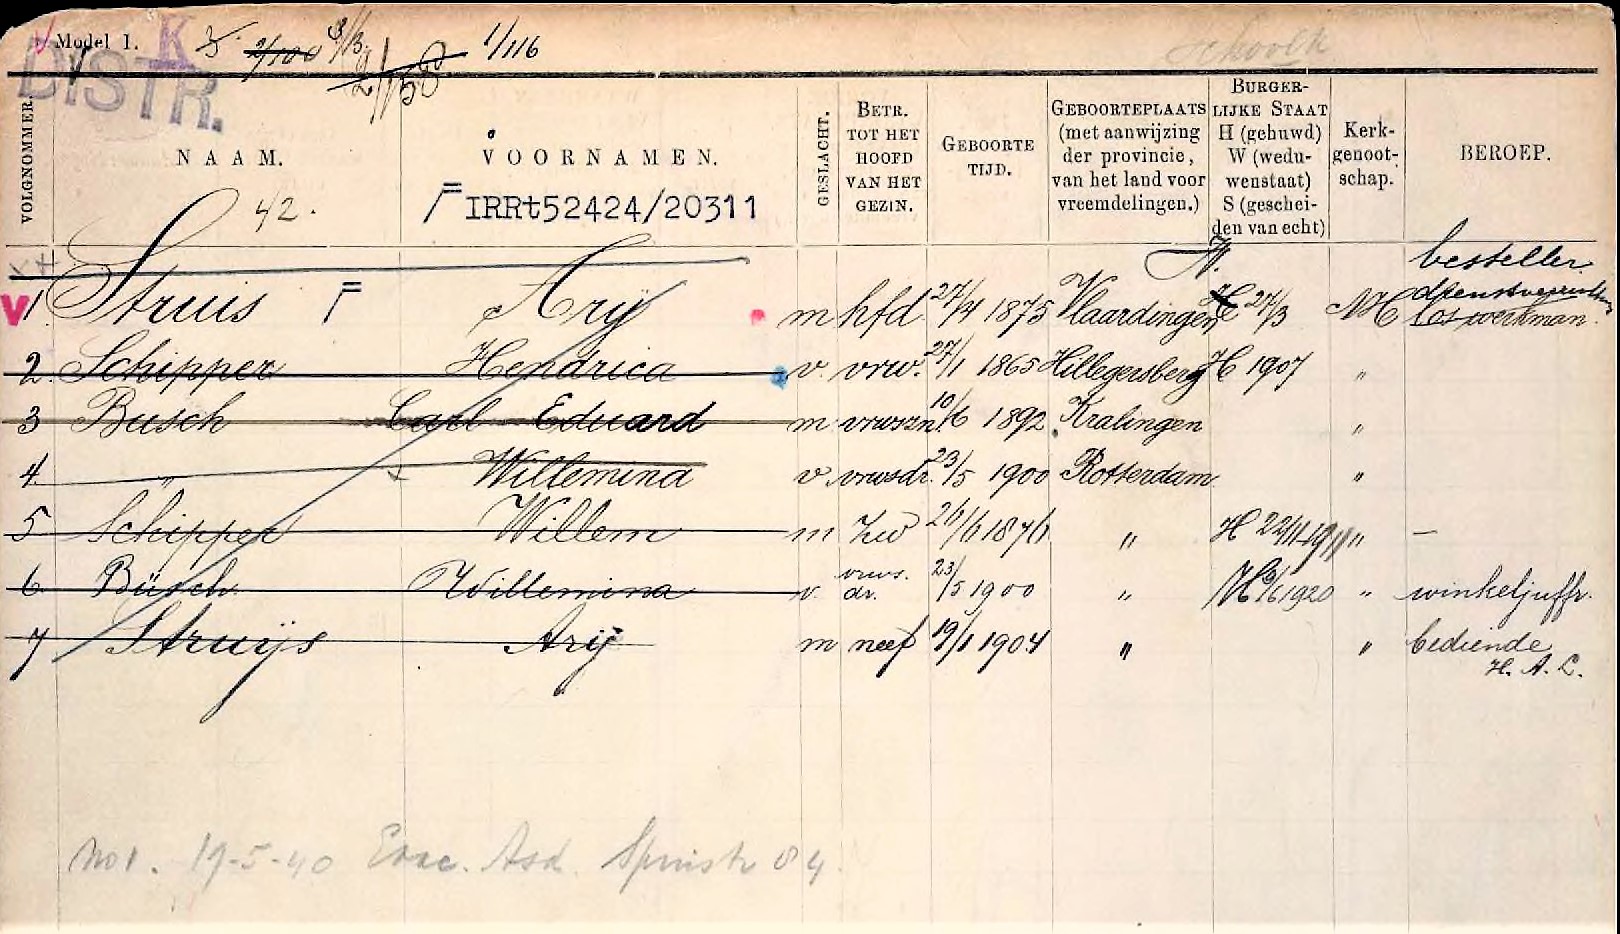 Model 1. K 3. 2/100 2/150 1/116
DISTR.
VOLGNOMMER.
NAAM.
VOORNAMEN.
GESLACHT.
BETR. TOT HET HOOFD VAN HET GEZIN.
GEBOORTE TIJD.
GEBOORTEPLAATS (met aanwijzing der provincie, van het land voor vreemdelingen.)
BURGER-LIJKE STAAT H (gehuwd) W (wedu-wenstaat) S (geschei-den van echt)
Kerk-genoot-schap.
BEROEP.
42. F IRRt52424/20311
W. besteller
V 1 Struis F Arij m hfd 27/4 1875 Vlaardingen H 27/3 NH los werkman
2 Schipper Hendrica v. vrw. 27/1 1865 Hillegersberg H 1907 "
3 Busch Carl Eduard m vrwszn 10/6 1892 Kralingen "
4 " Willemina v vrwsdr. 23/5 1900 Rotterdam "
5 Schipper Willem m zw 26/6 1876 " H 22/11 1911 " –
6 Büsch Willemina v vrws. dr. 23/5 1900 " H 9/6 1920 " winkeljuffr.
7 Struijs Arij m neef 19/1 1904 " " bediende
H. A. L.
No 1. 19-5-40 Evac. Asd. Spuistr 84.